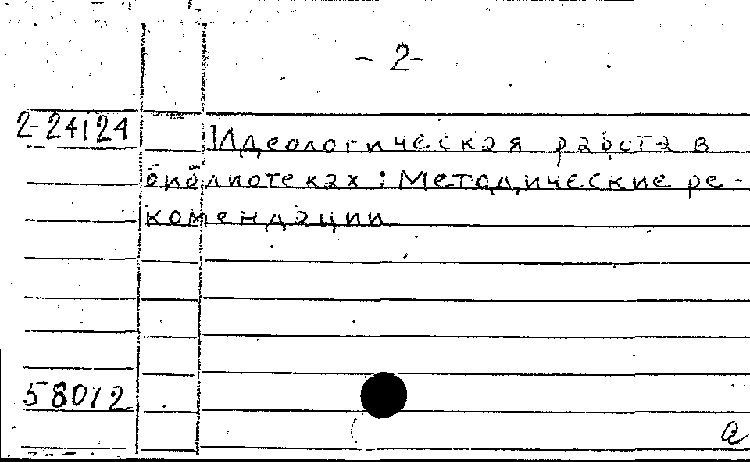 - 2 -
2-24124 Идеологическая работа в
библиотеках: Методические ре-
комендации
58012
а